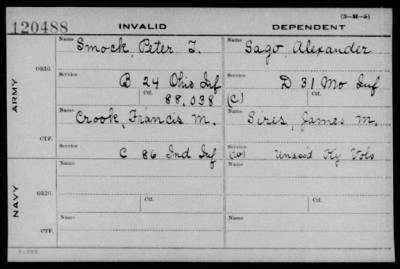 (3-M-5)
120488 INVALID DEPENDENT
Name Smock, Peter T. Name Sago, Alexander
ARMY
ORIG.
Service B 24 Ohio Inf Service D 31 Mo Inf
Ctf. 88,038 Ctf. (C)
Name Crook, Francis M. Name Sires, James M.
CTF.
Service C 86 Ind Inf Service Unass'd Ky Vols
Name Name
NAVY
ORIG.
Service Ctf. Service Ctf.
Name Name
CTF.
Service Service